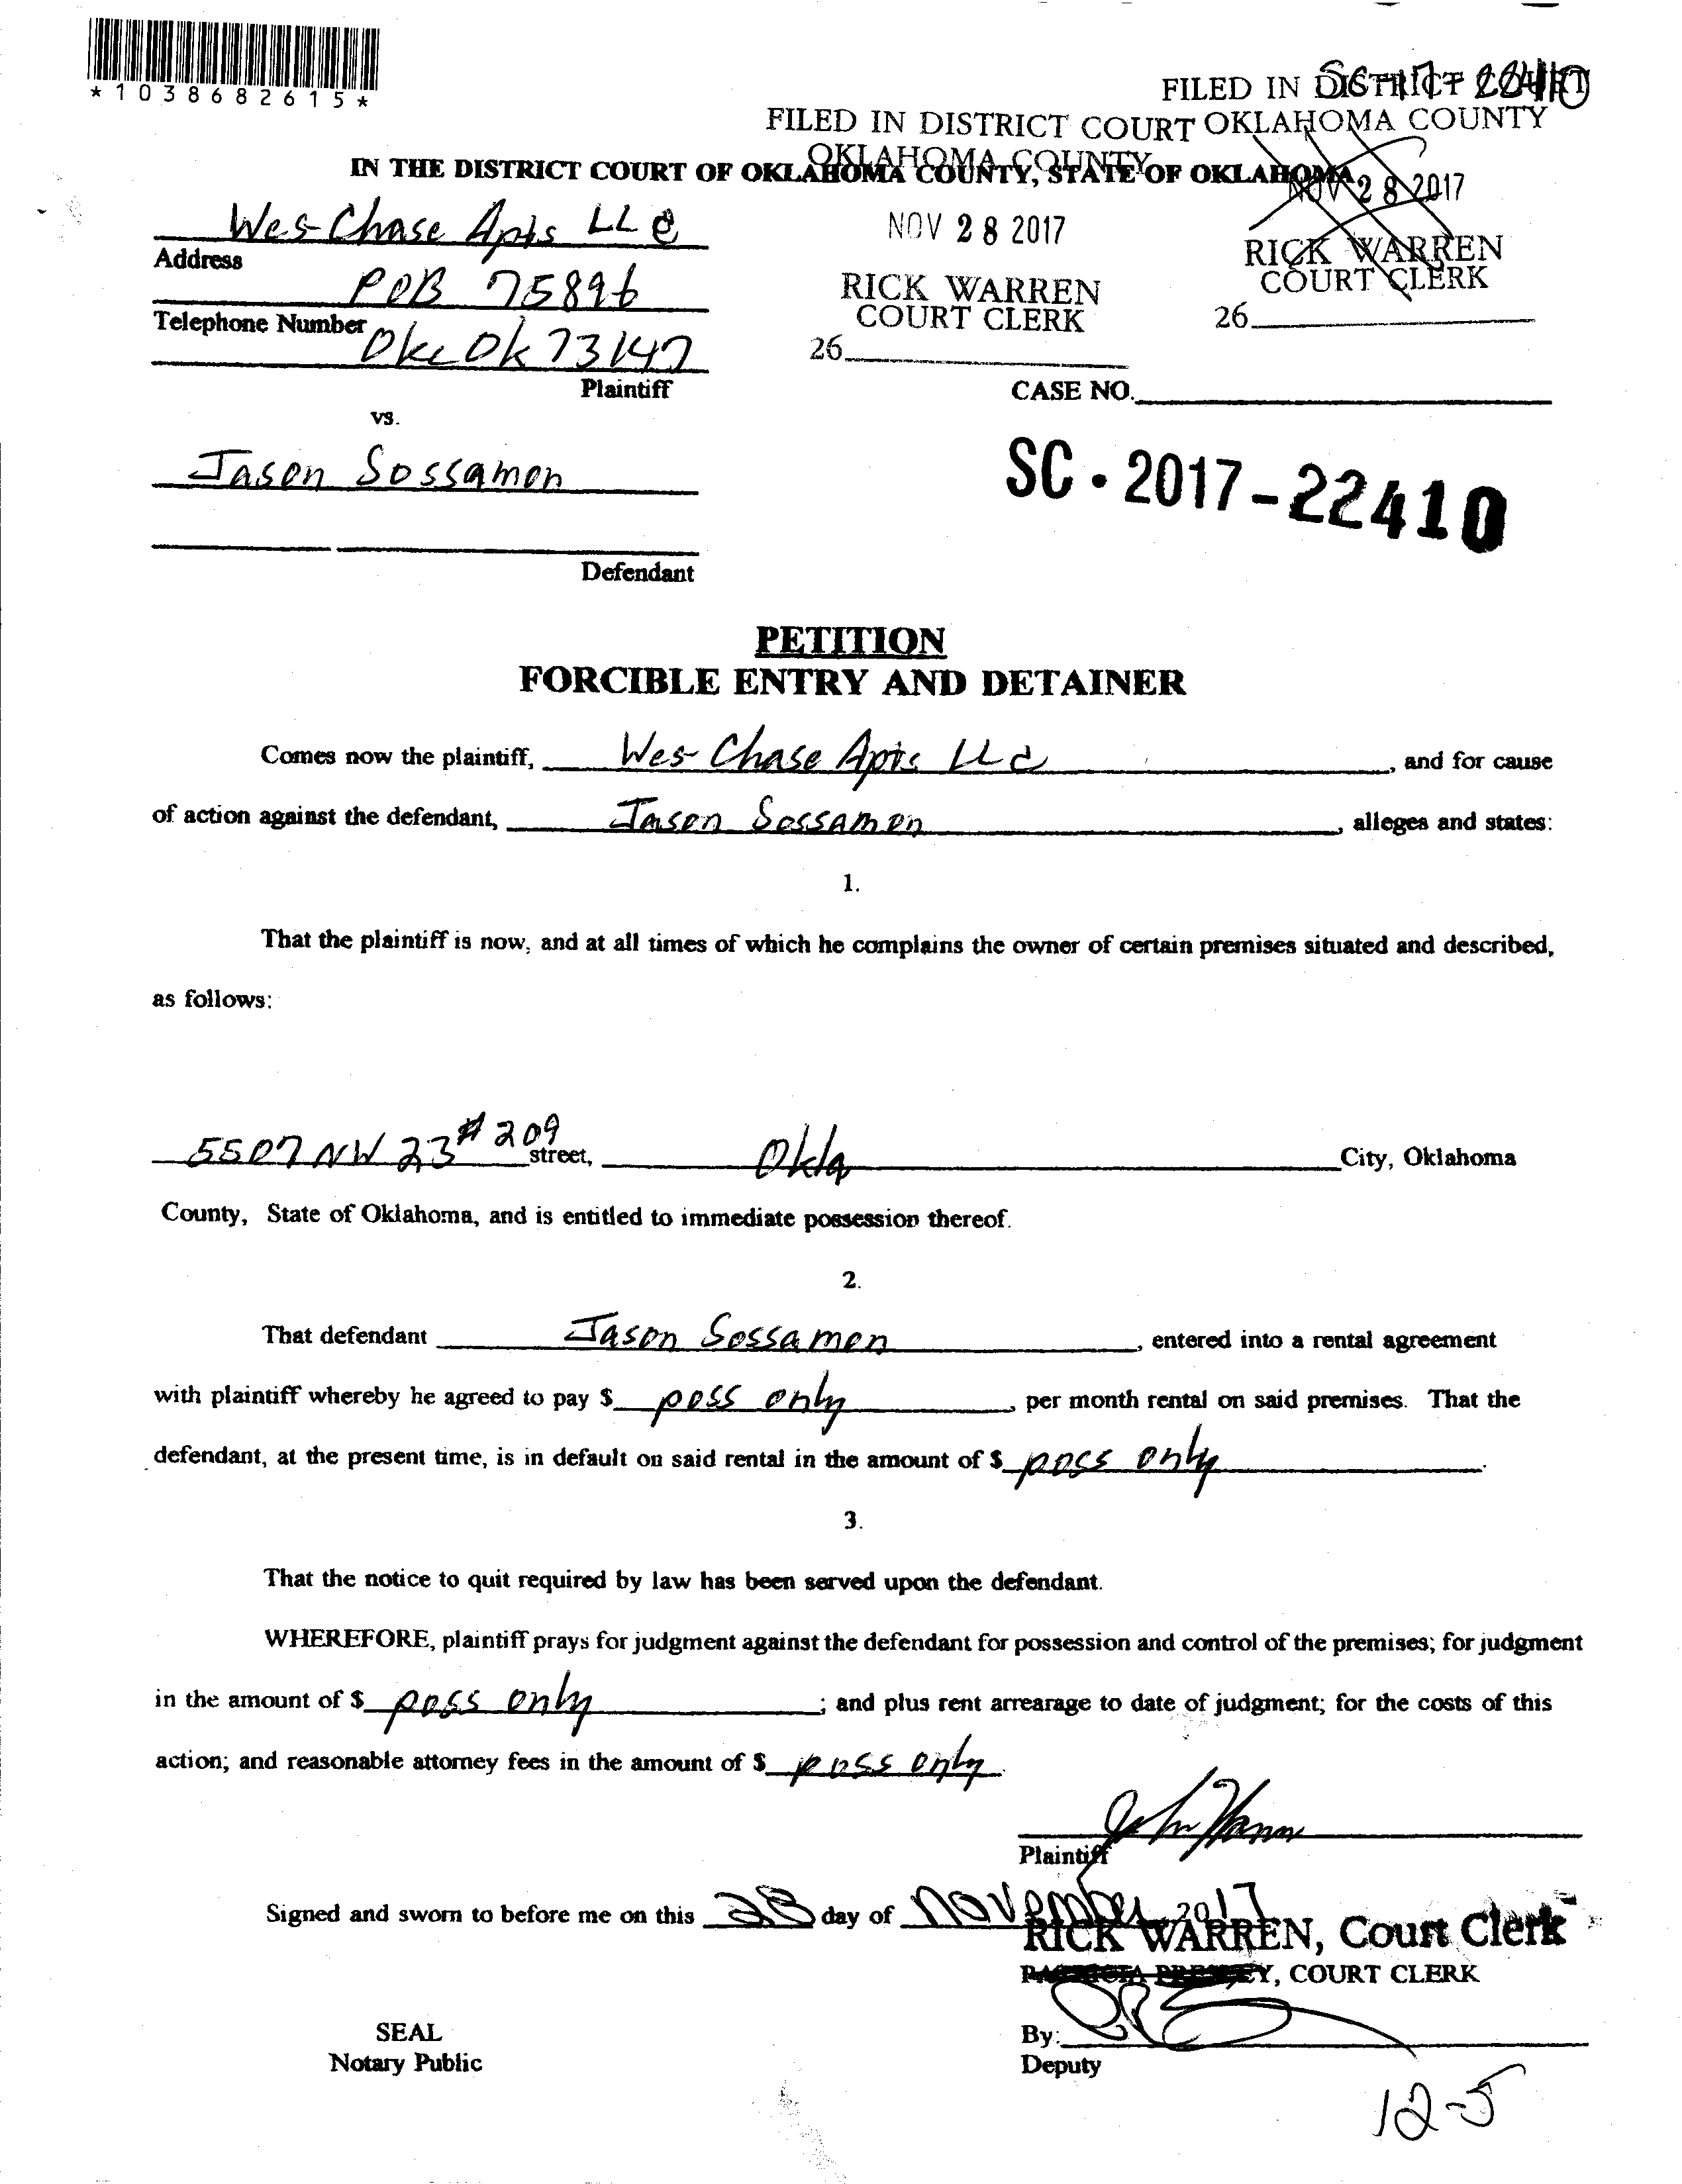 *1038682615*
SC-17-22410
FILED IN DISTRICT COURT
OKLAHOMA COUNTY
NOV 28 2017
RICK WARREN
COURT CLERK
26
FILED IN DISTRICT COURT
OKLAHOMA COUNTY
NOV 28 2017
RICK WARREN
COURT CLERK
26
IN THE DISTRICT COURT OF OKLAHOMA COUNTY, STATE OF OKLAHOMA
Wes-Chase Apts LLC
Address
POB 75896
Telephone Number
Okc Ok 73147
Plaintiff
CASE NO.
vs.
Jason Sossamon
SC-2017-22410
Defendant
PETITION
FORCIBLE ENTRY AND DETAINER
Comes now the plaintiff, Wes-Chase Apts LLC, and for cause
of action against the defendant, Jason Sossamon, alleges and states:
1.
That the plaintiff is now, and at all times of which he complains the owner of certain premises situated and described,
as follows:
5507 NW 23 # 209 street, Okla City, Oklahoma
County, State of Oklahoma, and is entitled to immediate possession thereof.
2.
That defendant Jason Sossamon, entered into a rental agreement
with plaintiff whereby he agreed to pay $ poss only, per month rental on said premises. That the
defendant, at the present time, is in default on said rental in the amount of $ poss only.
3.
That the notice to quit required by law has been served upon the defendant.
WHEREFORE, plaintiff prays for judgment against the defendant for possession and control of the premises; for judgment
in the amount of $ poss only; and plus rent arrearage to date of judgment; for the costs of this
action; and reasonable attorney fees in the amount of $ poss only.
Plaintiff
Signed and sworn to before me on this 28 day of November, 2017
RICK WARREN, Court Clerk
COURT CLERK
SEAL
Notary Public
By:
Deputy
12-5